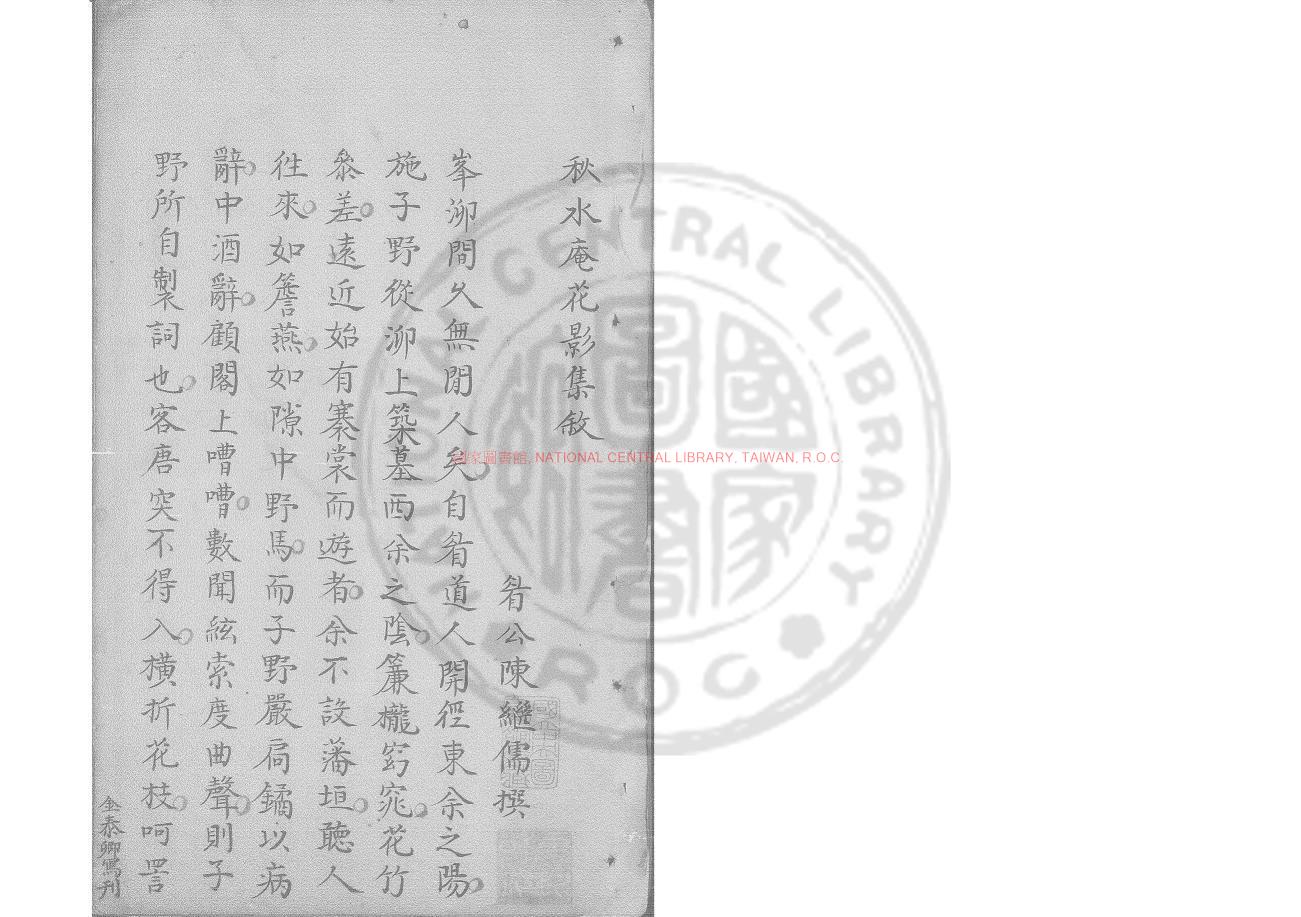 秋水庵花影集敘
眉公陳繼儒撰
峯泖間久無閒人矣自眉道人開徑東佘之陽
施子野從泖上築墓西佘之陰簾櫳窈窕花竹
叅差遠近始有褰裳而遊者余不設藩垣聽人
徃來如簷燕如隙中野馬而子野嚴扃鐍以病
辭中酒辭顧閣上嘈嘈數聞絃索度曲聲則子
野所自製詞也客唐突不得入橫折花枝呵詈
金泰卿寫刊
國家圖書館, NATIONAL CENTRAL LIBRARY, TAIWAN, R.O.C.
NATIONAL CENTRAL LIBRARY
ROC
國家圖書館